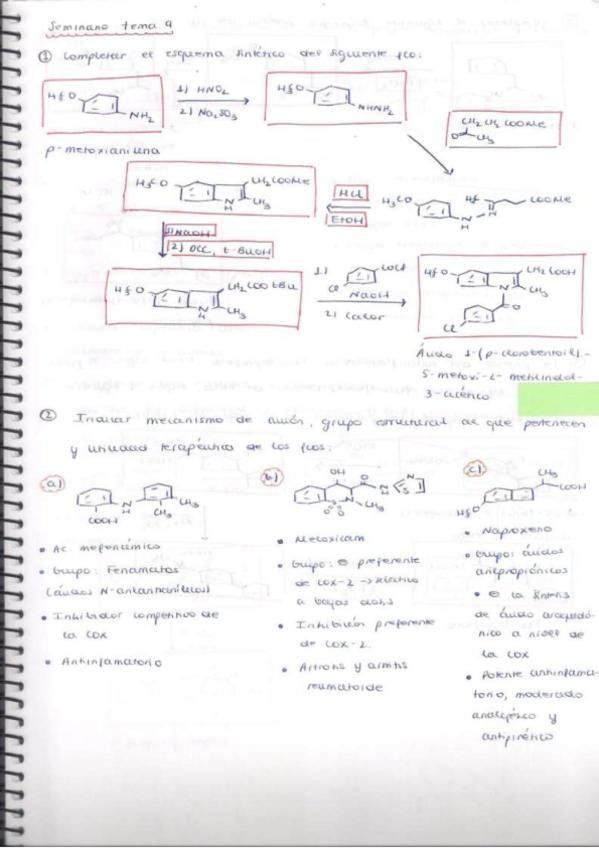 Seminario tema 9
① Completar el esquema sintético del siguiente fco:
H₃CO NH₂ 1) HNO₂ 2) Na₂SO₃ H₃CO NHNH₂
CH₂CH₂COOMe
O CH₃
p-metoxianilina
H₃CO CH₂COOMe N H CH₃ HCl EtOH H₃CO N H N COOMe
1) NaOH
2) DCC, t-BuOH
H₃CO CH₂COOtBu N H CH₃ 1) Cl COCl NaOH 2) Calor H₃CO CH₂COOH N CH₃ C=O Cl
Ácido 1-(p-clorobenzoil)-
5-metoxi-2-metilindol-
3-acético
② Indicar mecanismo de acción, grupo estructural al que pertenecen
y utilidad terapéutica de los fcos:
a)
N H CH₃ CH₃ COOH
• Ac. mefenámico
• Grupo: Fenamatos
(ácidos N-antranílicos)
• Inhibidor competitivo de
la COX
• Antiinflamatorio
b)
OH O NH N S N CH₃ S O O
• Meloxicam
• Grupo: ⊖ preferente
de COX-2 → selectivo
a bajas dosis
• Inhibición preferente
de COX-2.
• Artrosis y artritis
reumatoide
c)
CH₃ COOH H₃CO
• Naproxeno
• Grupo: ácidos
arilpropiónicos
• ⊖ la síntesis
de ácido araquidó-
nico a nivel de
la COX
• Potente antiinflama-
torio, moderado
analgésico y
antipirético